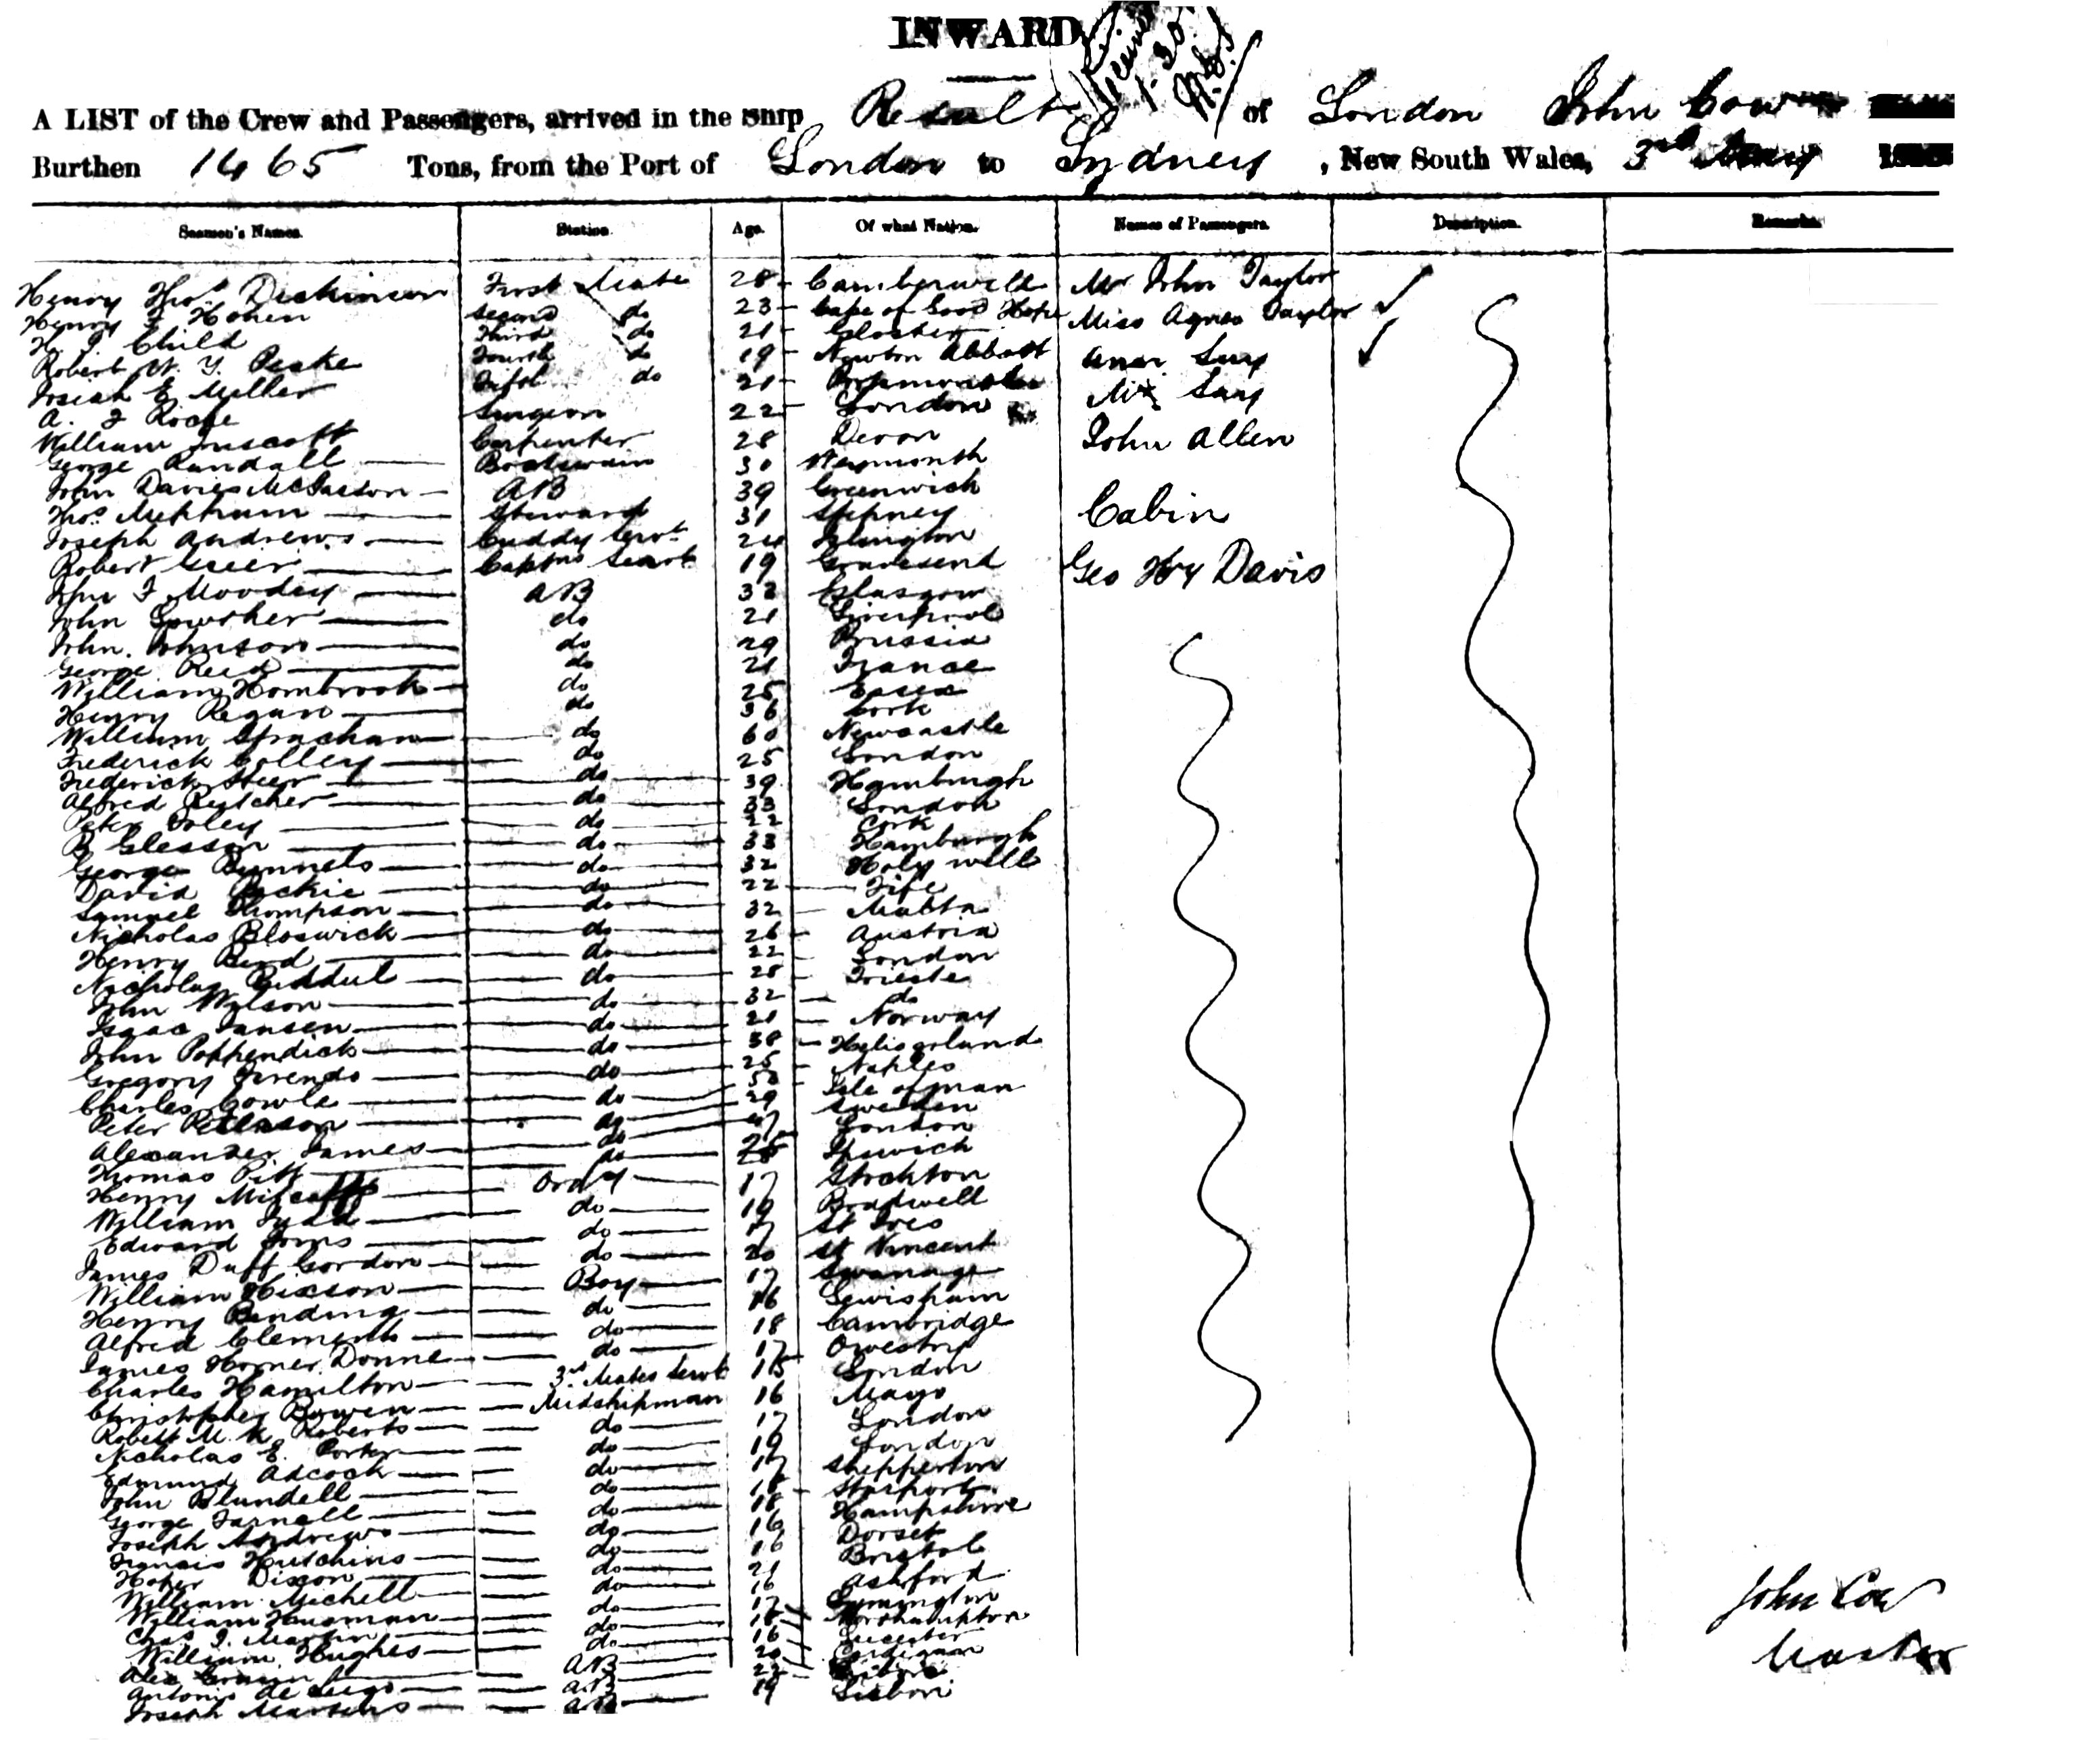 INWARD
A LIST of the Crew and Passengers, arrived in the Ship Result of London John Cow
Burthen 1465 Tons, from the Port of London to Sydney, New South Wales, 3rd May
Seamen's Names. Station. Age. Of what Nation. Names of Passengers. Description. Remarks.
Henry Thos. Dickinson First Mate 28 Camberwell Mr John Taylor
Henry Hohen Second do 23 Cape of Good Hope Miss Agnes Taylor
H. J. Child Third do 21 Gloster
Robert W. Y. Peake Fourth do 19 Newton Abbott
Josiah E Miller Fifth do 21
A. J Roche Surgeon 22 London
William Inscott Carpenter 28 Devon John Allen
George Randall Boatswain 30
John Davies AB 39 Greenwich
Thos. Steward 31 Stepney Cabin
Joseph Andrews Cuddy Servt 24 Islington
Robert Grier Captns Servt 19 Gravesend Geo Hry Davis
John J Moodey AB 32 Glasgow
John Lowther do 21 Liverpool
John Johnson do 29 Prussia
George Reid do 21 France
William Hornbrook do 25 Essex
Henry Regan do 36 Cork
William Strachan do 60 Newcastle
Frederick Colley do 25 London
Frederick Steer do 39 Hamburgh
Alfred Butcher do 33 London
Peter Foley do 22 Cork
B Gleeson do 33 Hamburgh
George Runnels do 32 Holy well
David do 22 Fife
Samuel Thompson do 32 Malta
Nicholas Bloswick do 26 Austria
Henry do 22 London
Nicholas do 28 Trieste
John Wilson do 32 do
Isaac Jansen do 21 Norway
John Poppendick do 38 Heligoland
Gregory do 25 Naples
Charles Cowle do 50 Isle of man
Peter Petterson do 29 Sweden
Alexander James do London
Thomas Pitt do Ipswich
Henry Ordy 17 Stockton
William Judd do 19 Bradwell
Edward do 17 St Ives
James Duff Gordon do 20 St Vincent
William Hixson Boy 17 Swanage
Henry Binding do 16 Lewisham
Alfred Clements do 18 Cambridge
James Horner Donne do 17
Charles Hamilton 3rd Mates Servt 15 London
Christopher Bowen Midshipman 16 Mayo
Robert M. K. Roberts do 17 London
Nicholas E. Porter do 19 London
Edmund Adcock do 17 Shepperton
John Blundell do 18
George Farnell do 18 Hampshire
Joseph Andrews do 16 Dorset
Francis Hutchins do 16 Bristol
Dixon do 21 Ashford
William Michell do 16 Lymington
William Hausman do 17 Northampton
Chas. J. Martin do 16 Leicester
William Hughes do 16 Cardigan
Alex AB 20
Antonio de AB 22
Joseph Martins AB 19 Lisbon
John Cow
Master